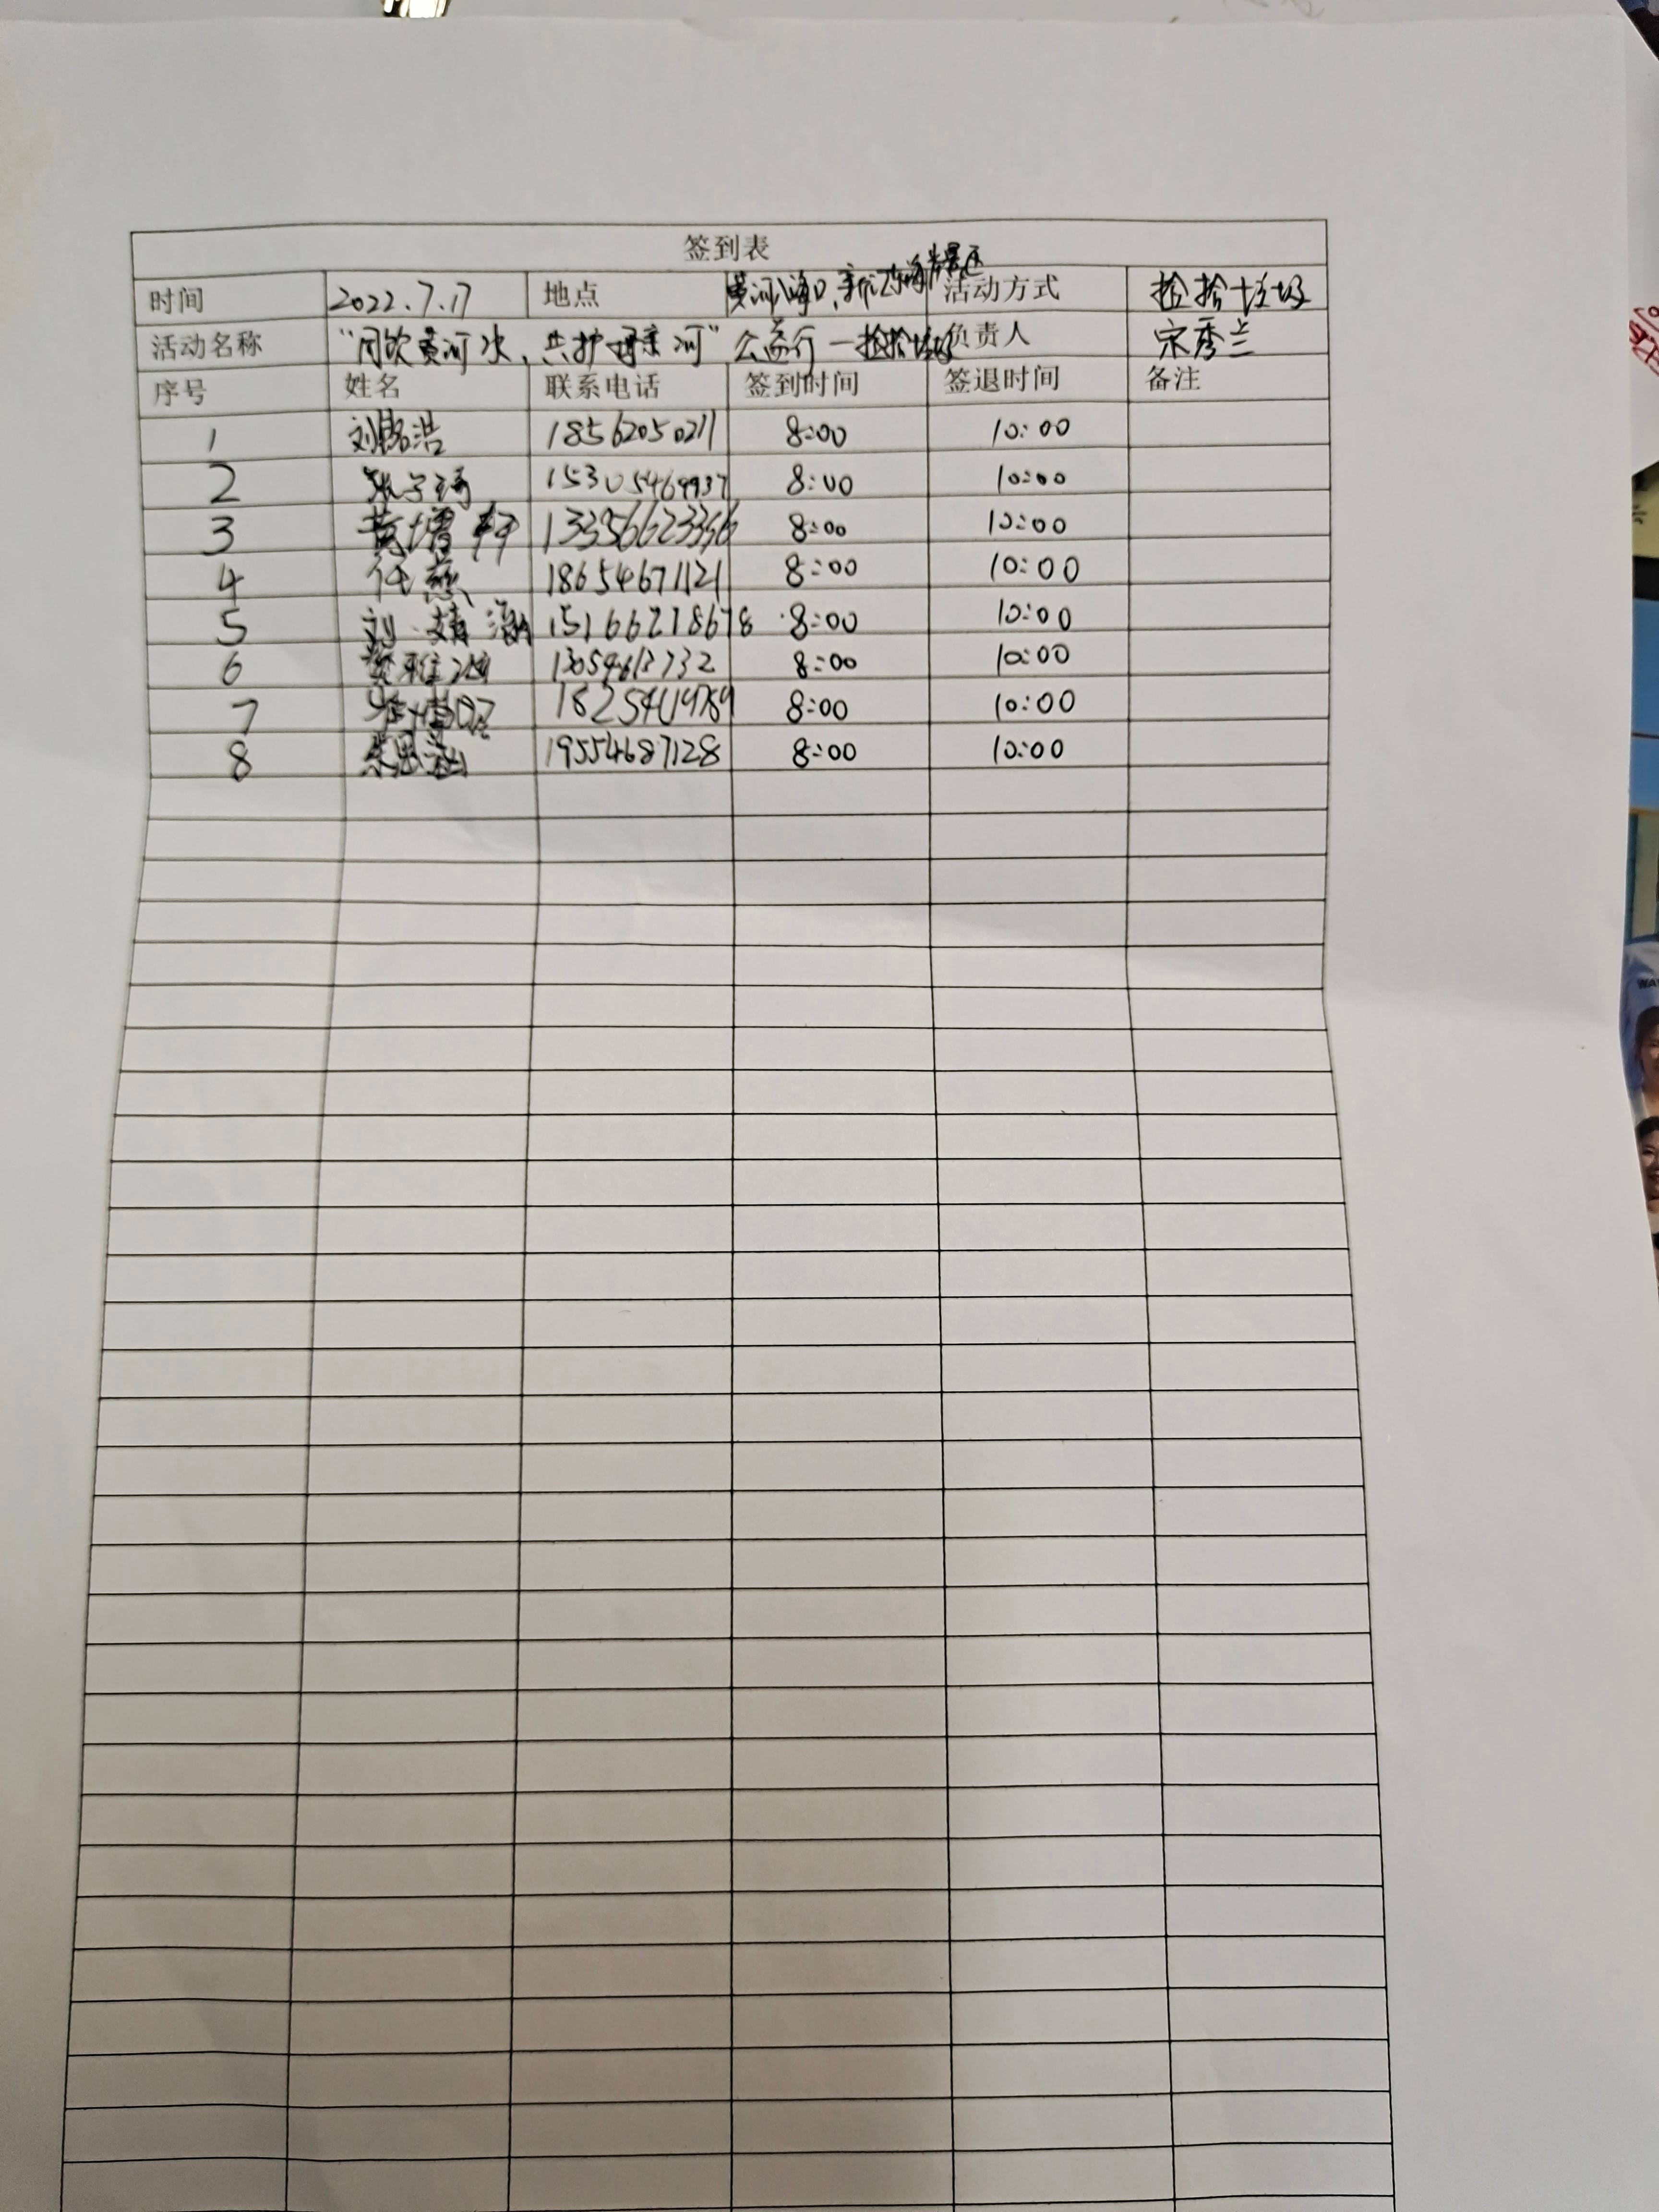 签到表
时间 2022.7.17 地点 黄河入海口, 海岸景区 活动方式 捡拾垃圾
活动名称 "同饮黄河水,共护母亲河"公益行—捡拾垃圾 负责人 宋秀兰
序号 姓名 联系电话 签到时间 签退时间 备注
1 刘铭浩 18562050211 8:00 10:00
2 张子琦 15305469937 8:00 10:00
3 8:00 10:00
4 任燕 18654671121 8:00 10:00
5 刘婧 15166278678 8:00 10:00
6 8:00 10:00
7 8:00 10:00
8 19554687128 8:00 10:00